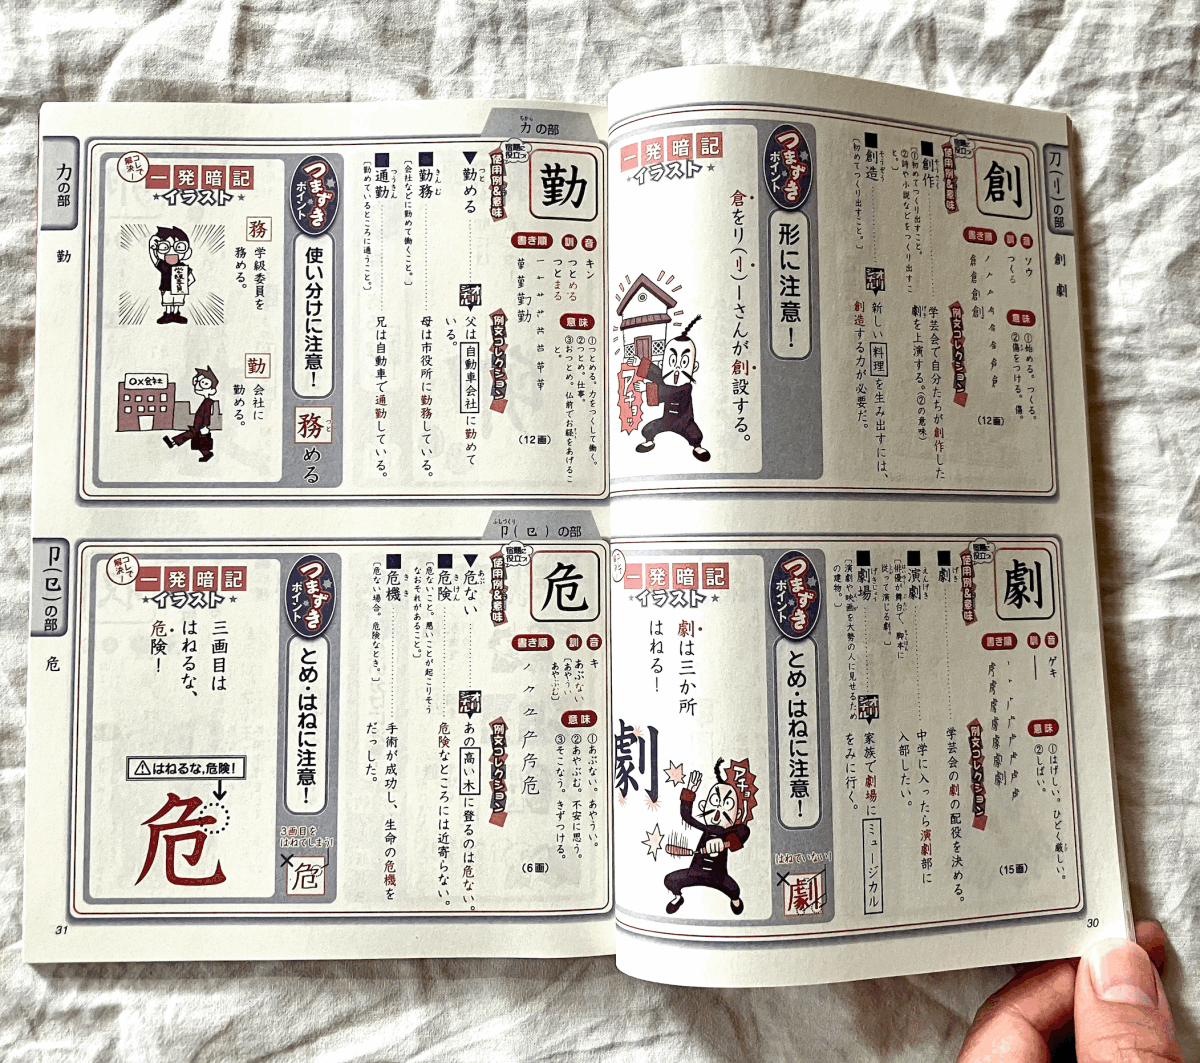 刀(刂)の部
創
劇
創
音
ソウ
訓
つくる
書き順
意味
①始める。つくる。
②傷をつける。傷。
(12画)
宿題に役立つ
使用例&意味
■創作
〔①初めてつくり出すこと。
②詩や小説などをつくり出すこと。〕
■創造
〔初めてつくり出すこと。〕
例文コレクション
学芸会で自分たちが創作した
劇を上演する。(②の意味)
新しい料理を生み出すには、
創造する力が必要だ。
つまずきポイント
形に注意!
一発暗記
イラスト
倉をリ(刂)ーさんが創設する。
アチョッ
劇
音
ゲキ
訓
書き順
意味
①はげしい。ひどく厳しい。
②しばい。
(15画)
宿題に役立つ
使用例&意味
■劇
■演劇
〔俳優が舞台で、脚本に
従って演じる劇。〕
■劇場
〔演劇や映画を大勢の人に見せるため
の建物。〕
例文コレクション
学芸会の劇の配役を決める。
中学に入ったら演劇部に
入部したい。
家族で劇場にミュージカル
をみに行く。
つまずきポイント
とめ・はねに注意!
はねていない!
×劇
一発暗記
イラスト
劇は三か所
はねる!
劇
アチョー
30
力の部
力の部
勤
勤
音
キン
訓
つとめる
つとまる
書き順
意味
①つとめる。力をつくして働く。
②つとめ。仕事。
③おつとめ。仏前でお経をあげるこ
と。
(12画)
宿題に役立つ
使用例&意味
▼勤める
■勤務
〔会社などに勤めて働くこと。〕
■通勤
〔勤めているところに通うこと。〕
例文コレクション
父は自動車会社に勤めて
いる。
母は市役所に勤務している。
兄は自動車で通勤している。
つまずきポイント
使い分けに注意!
務める
コレで解決!
一発暗記
イラスト
務
学級委員を
務める。
学級委員
勤
会社に
勤める。
○×会社
卩(㔾)の部
卩(㔾)の部
危
危
音
キ
訓
あぶない
〔あやうい
あやぶむ〕
書き順
意味
①あぶない。あやうい。
②あやぶむ。不安に思う。
③そこなう。きずつける。
(6画)
宿題に役立つ
使用例&意味
▼危ない
■危険
〔危ないこと。悪いことが起こりそう
なおそれがあること。〕
■危機
〔危ない場合。危険なとき。〕
例文コレクション
あの高い木に登るのは危ない。
危険なところには近寄らない。
手術が成功し、生命の危機を
だっした。
つまずきポイント
とめ・はねに注意!
3画目を
はねてしまう!
×危
コレで解決!
一発暗記
イラスト
三画目は
はねるな、
危険!
⚠はねるな,危険!
危
31